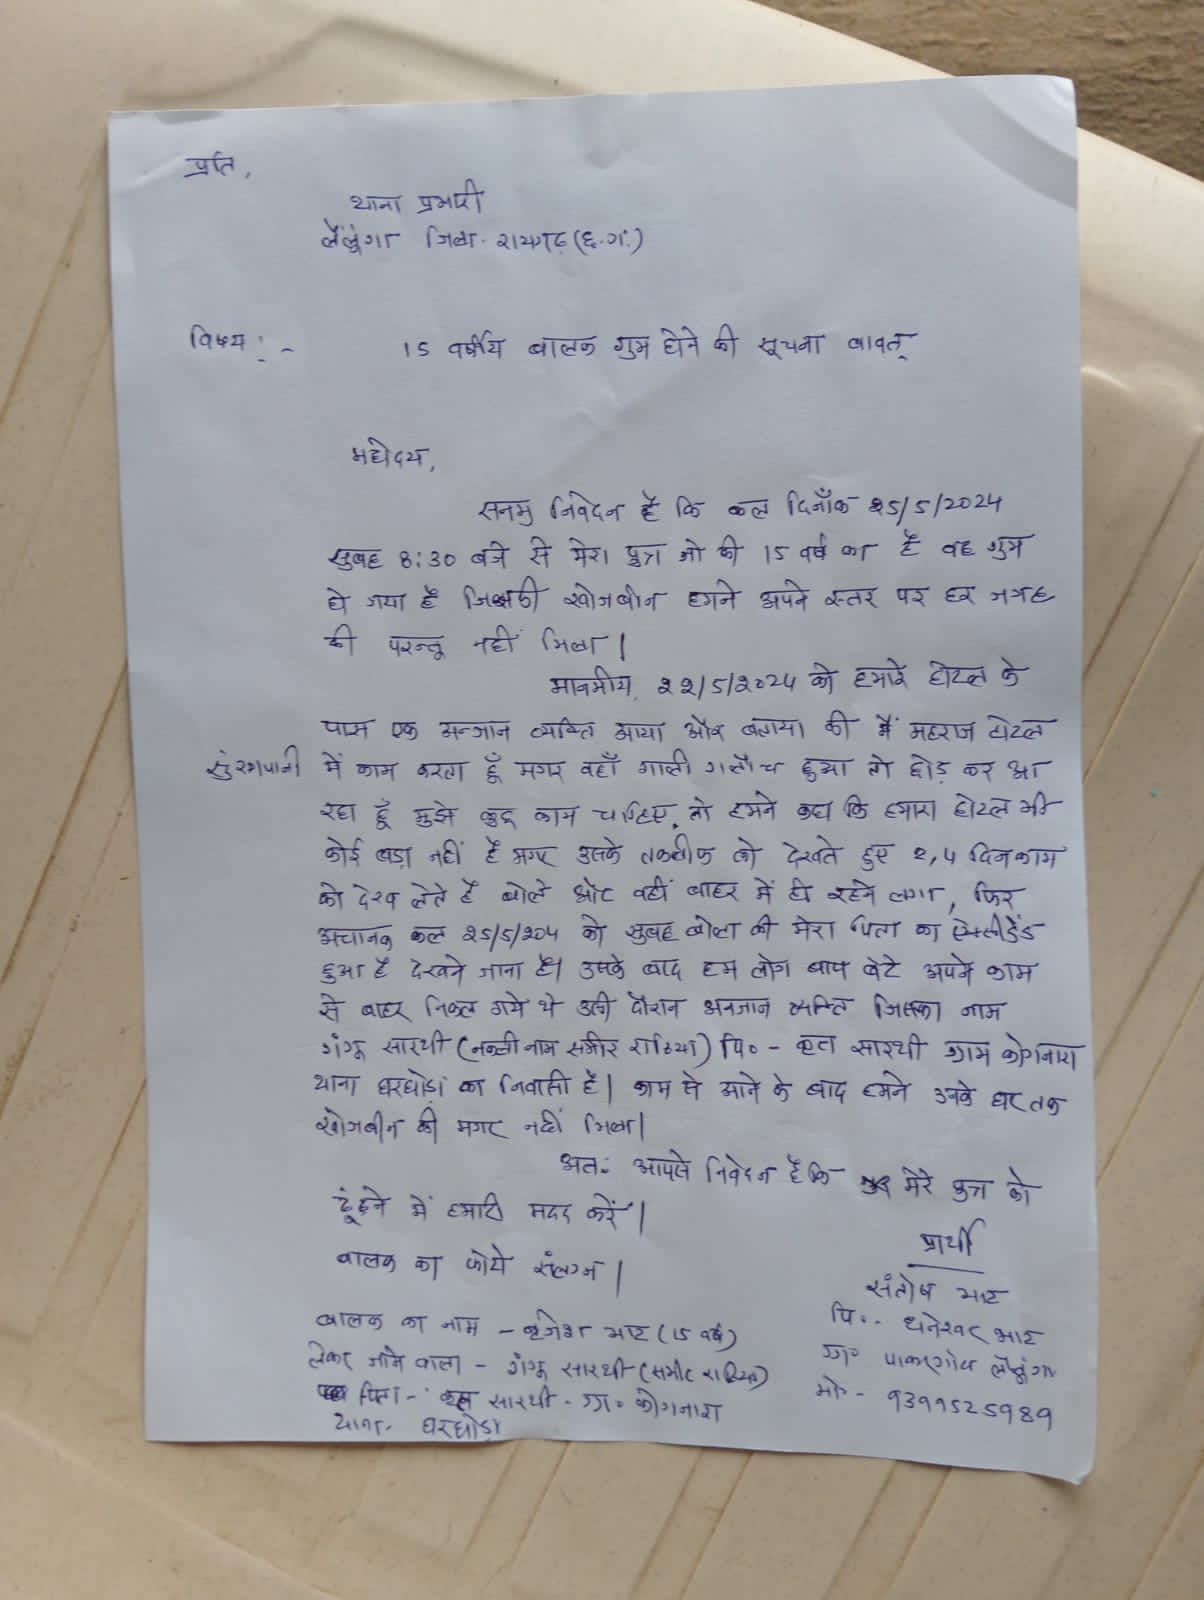 प्रति,
थाना प्रभारी
लैलुंगा जिला- रायगढ़ (छ.ग.)
विषय :- 15 वर्षीय बालक गुम होने की सूचना बावत्
महोदय,
सनम्र निवेदन है कि कल दिनाँक 25/5/2024
सुबह 8:30 बजे से मेरा पुत्र जो की 15 वर्ष का है वह गुम
हो गया है जिसकी खोजबीन हमने अपने स्तर पर हर जगह
की परन्तू नहीं मिला।
माननीय, 22/5/2024 को हमारे होटल के
पास एक अन्जान व्यक्ति आया और बताया की मैं महराज होटल
सुंरगपानी में काम करता हूँ मगर वहाँ गाली गलौच हुआ तो छोड़ कर आ
रहा हूँ मुझे कुछ काम चाहिए, तो हमने कहा कि हमारा होटल भी
कोई बड़ा नहीं है मगर उसके तकलीफ को देखते हुए 2,4 दिन काम
को देख लेते है बोले और वहीं बाहर में ही रहने लगा, फिर
अचानक कल 25/5/204 को सुबह बोला की मेरा पिता का
हुआ है देखने जाना है। उसके बाद हम लोग बाप बेटे अपने काम
से बाहर निकल गये थे उसी दौरान अनजान व्यक्ति जिसका नाम
गंगू सारथी (नकली नाम समीर राठिया) पि० - कृत सारथी ग्राम कोगनारा
थाना घरघोड़ा का निवासी है। काम से आने के बाद हमने उनके घर तक
खोजबीन की मगर नहीं मिला।
अतः आपसे निवेदन है कि मेरे पुत्र को
ढूंढ़ने में हमारी मदद करें।
प्रार्थी
बालक का फोटो संलग्न।
संतोष भाट
पि०- धनेश्वर भाट
ग्रा० पाकरगांव लैलुंगा
मो०- 9399525989
बालक का नाम - बृजेश भाट (15 वर्ष)
लेकर जाने वाला - गंगू सारथी (समीर राठिया)
पिता- कृत सारथी - ग्रा० कोगनारा
थाना- घरघोड़ा